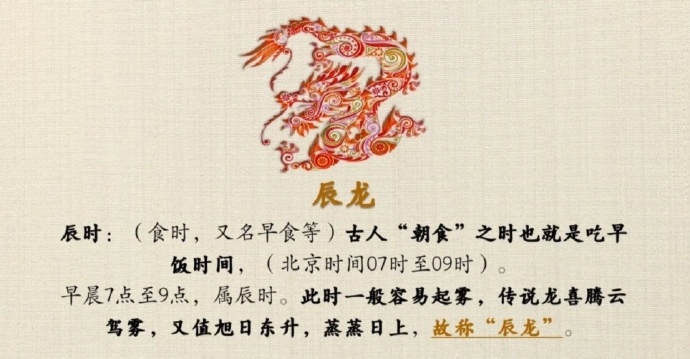 辰龙
辰时：（食时，又名早食等）古人“朝食”之时也就是吃早
饭时间，（北京时间07时至09时）。
早晨7点至9点，属辰时。此时一般容易起雾，传说龙喜腾云
驾雾，又值旭日东升，蒸蒸日上，故称“辰龙”。